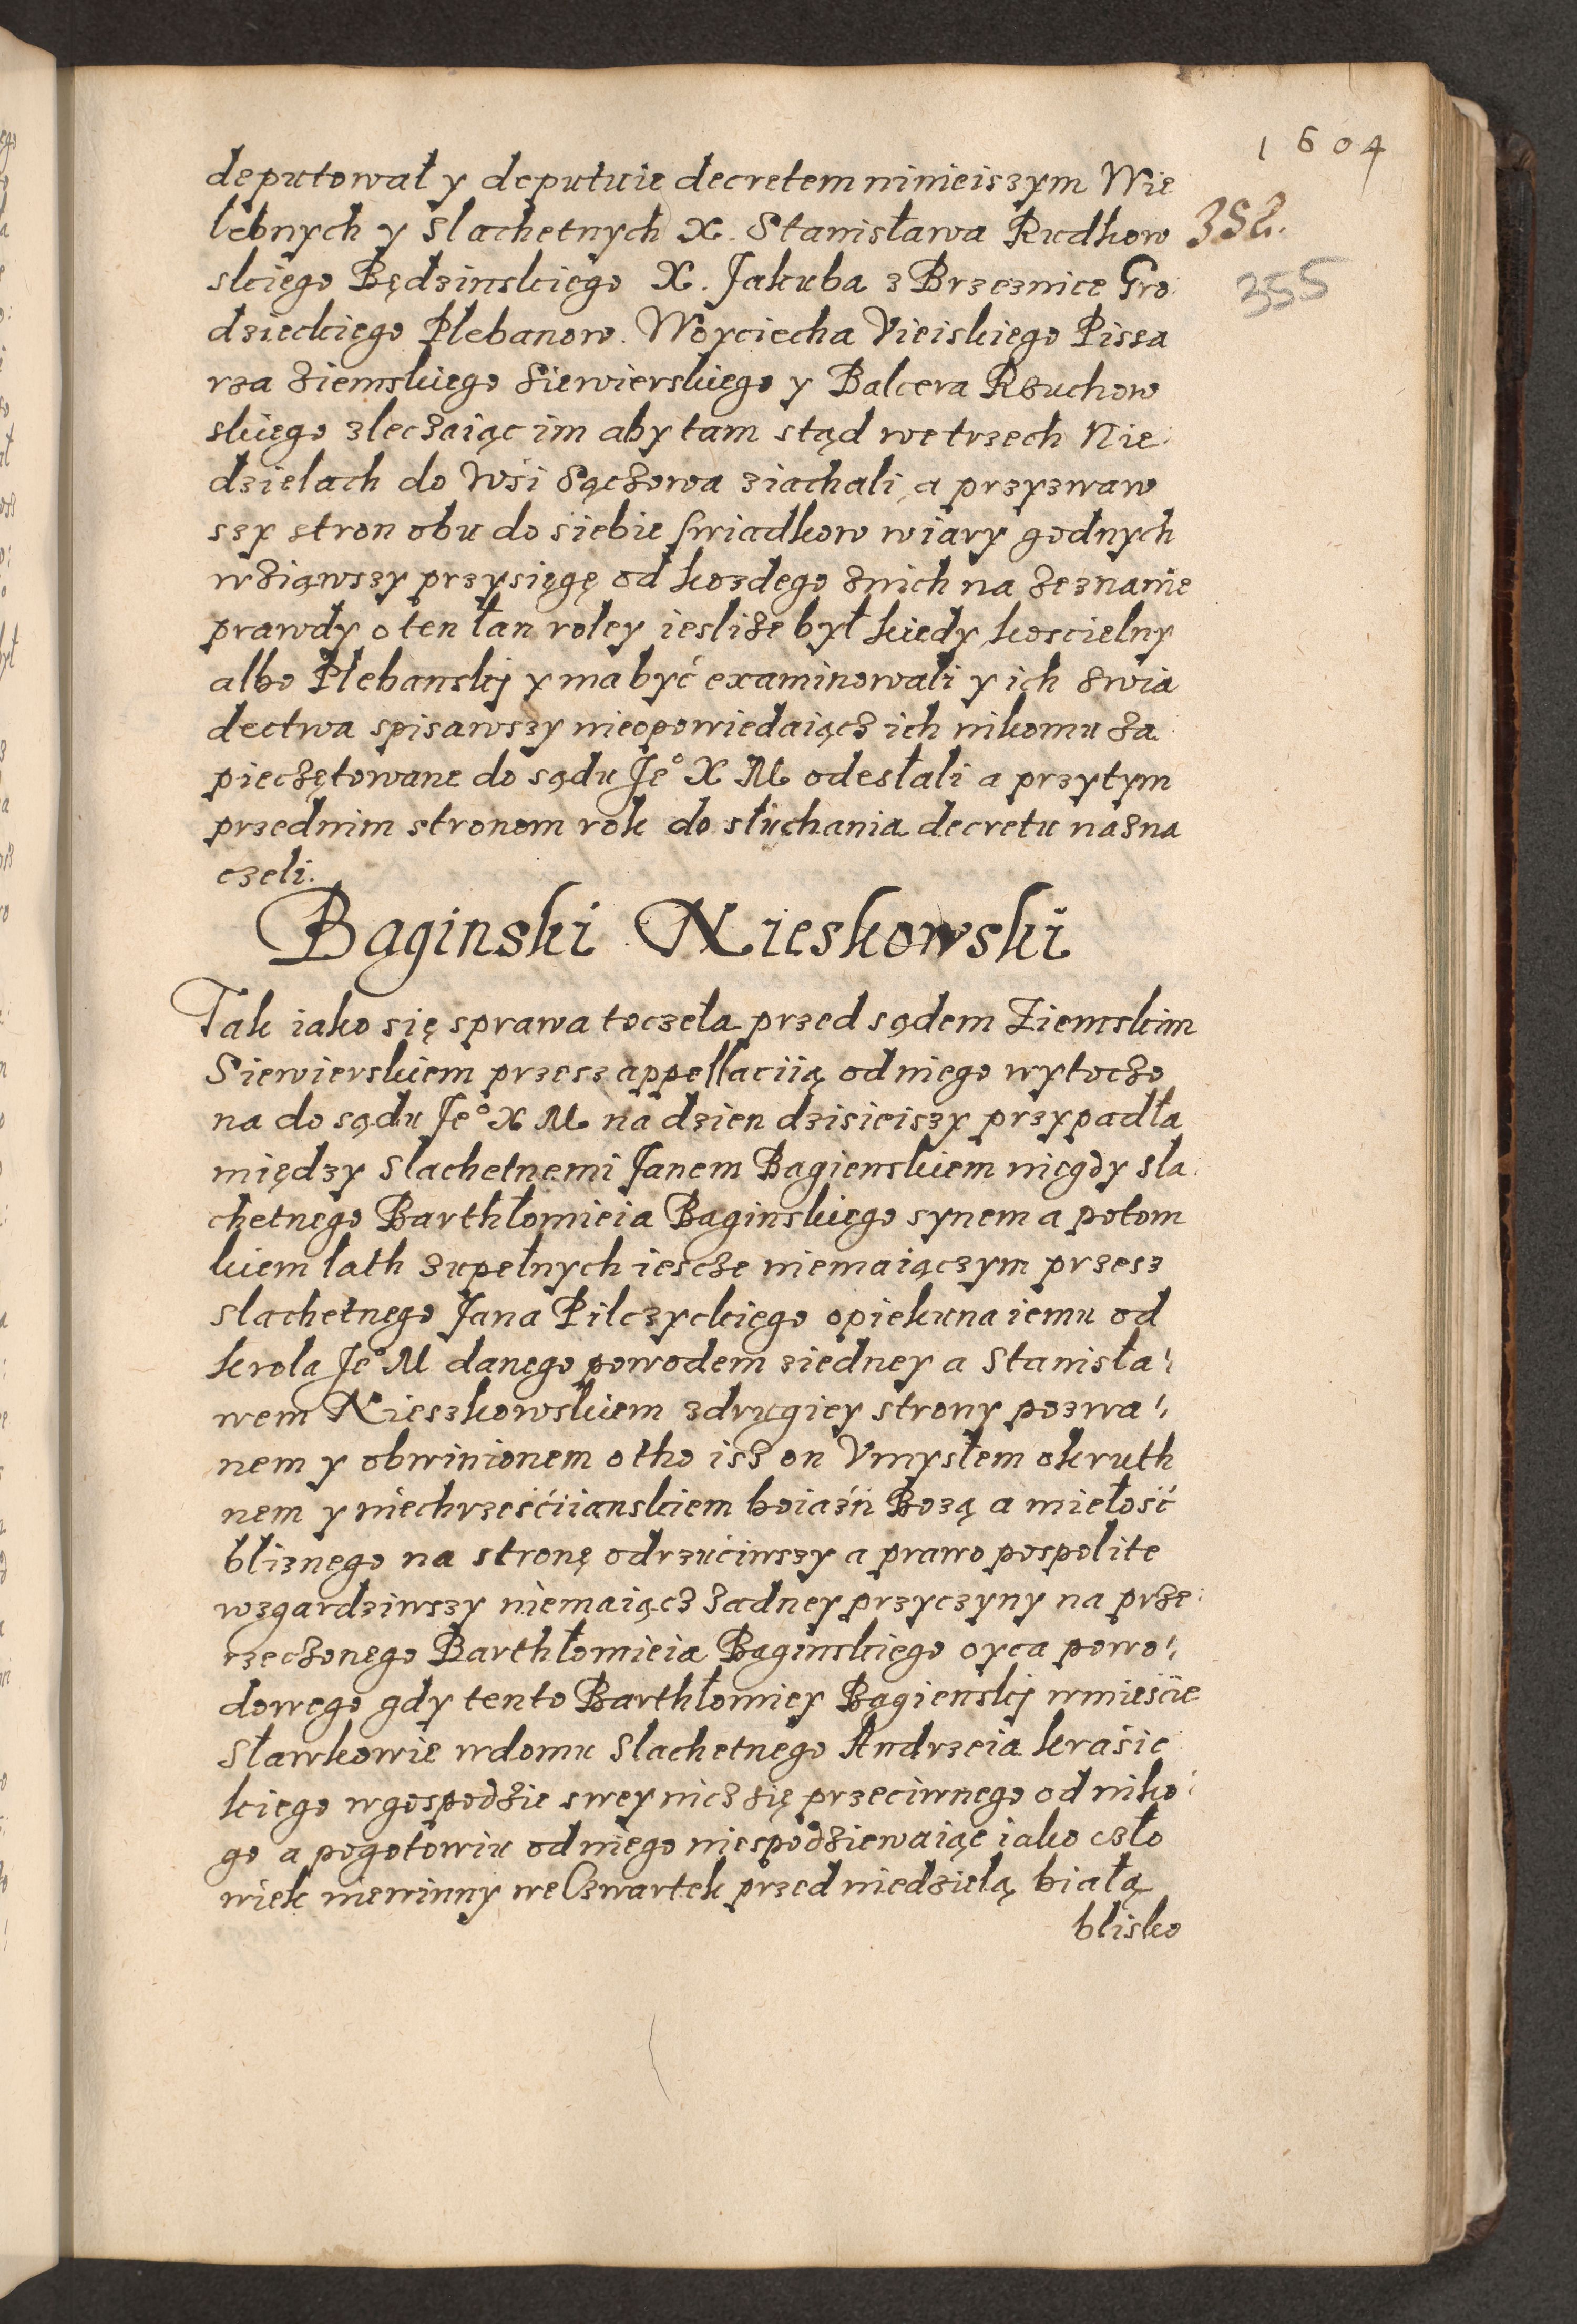 1604
deputował y deputuie decretem ninieiszym Wie
lebnych y Slachetnych X. Stanisława Rudkow
352.
skiego Będzinskiego X. Jakuba z Brzeznice Gro:
355
dzieckiego Plebanow. Woyciecha Vieiskiego Pissa
rza Ziemskiego Siewierskiego y Balcera Rzuchow
skiego zleczaiąc im aby tam stąd we trzech Nie:
dzielach do Wśi Sączowa ziachali, a przyzwaw
szy stron obu do siebie swiadkow wiary godnych
wziąwszy przysięgę od kozdego znich na zeznanie
prawdy o ten łan roley ieslize był kiedy koscielny
albo Plebanskj y ma być examinowali y ich swia
dectwa spisawszy nieopowiedaiącz ich nikomu za
pieczętowane do sądu Je° X M odesłali a przytym
przednim stronom rok do słuchania decretu nazna
czeli.
Baginski Nieskowski
Tak iako się sprawa toczeła przed sądem Ziemskim
Siewierskiem przesz appellaciią od niego wytoczo
na do sądu Je° X M na dzien dzisieiszy przypadła
między Slachetnemi Janem Bagienskiem niegdy sla:
chetnego Barthłomieia Baginskiego synem a potom
kiem lath zupełnych iescze niemaiączym przesz
Slachetnego Jana Pilczyckiego opiekuna iemu od
krola Je° M danego powodem ziedney a Stanisła
wem Nieszkowskiem zdrugiey strony pozwa
nem y obwinionem otho isz on Vmysłem okruth
nem y niechrześćiianskiem boiaźń Bozą a miełość
bliznego na stronę odrzućiwszy a prawo pospolite
wzgardziwszy niemaiącz zadney przyczyny na prze:
rzeczonego Barthłomieia Baginskiego oyca powo
dowego gdy tento Barthłomiey Bagienskj wmieście
Sławkowie wdomu Slachetnego Andrzeia kraśic
kiego wgospodzie swey nicz się przeciwnego od niko
go a pogotowiu od niego niespodziewaiąc iako czło
wiek niewinny we Czwartek przed niedzielą białą
blisko